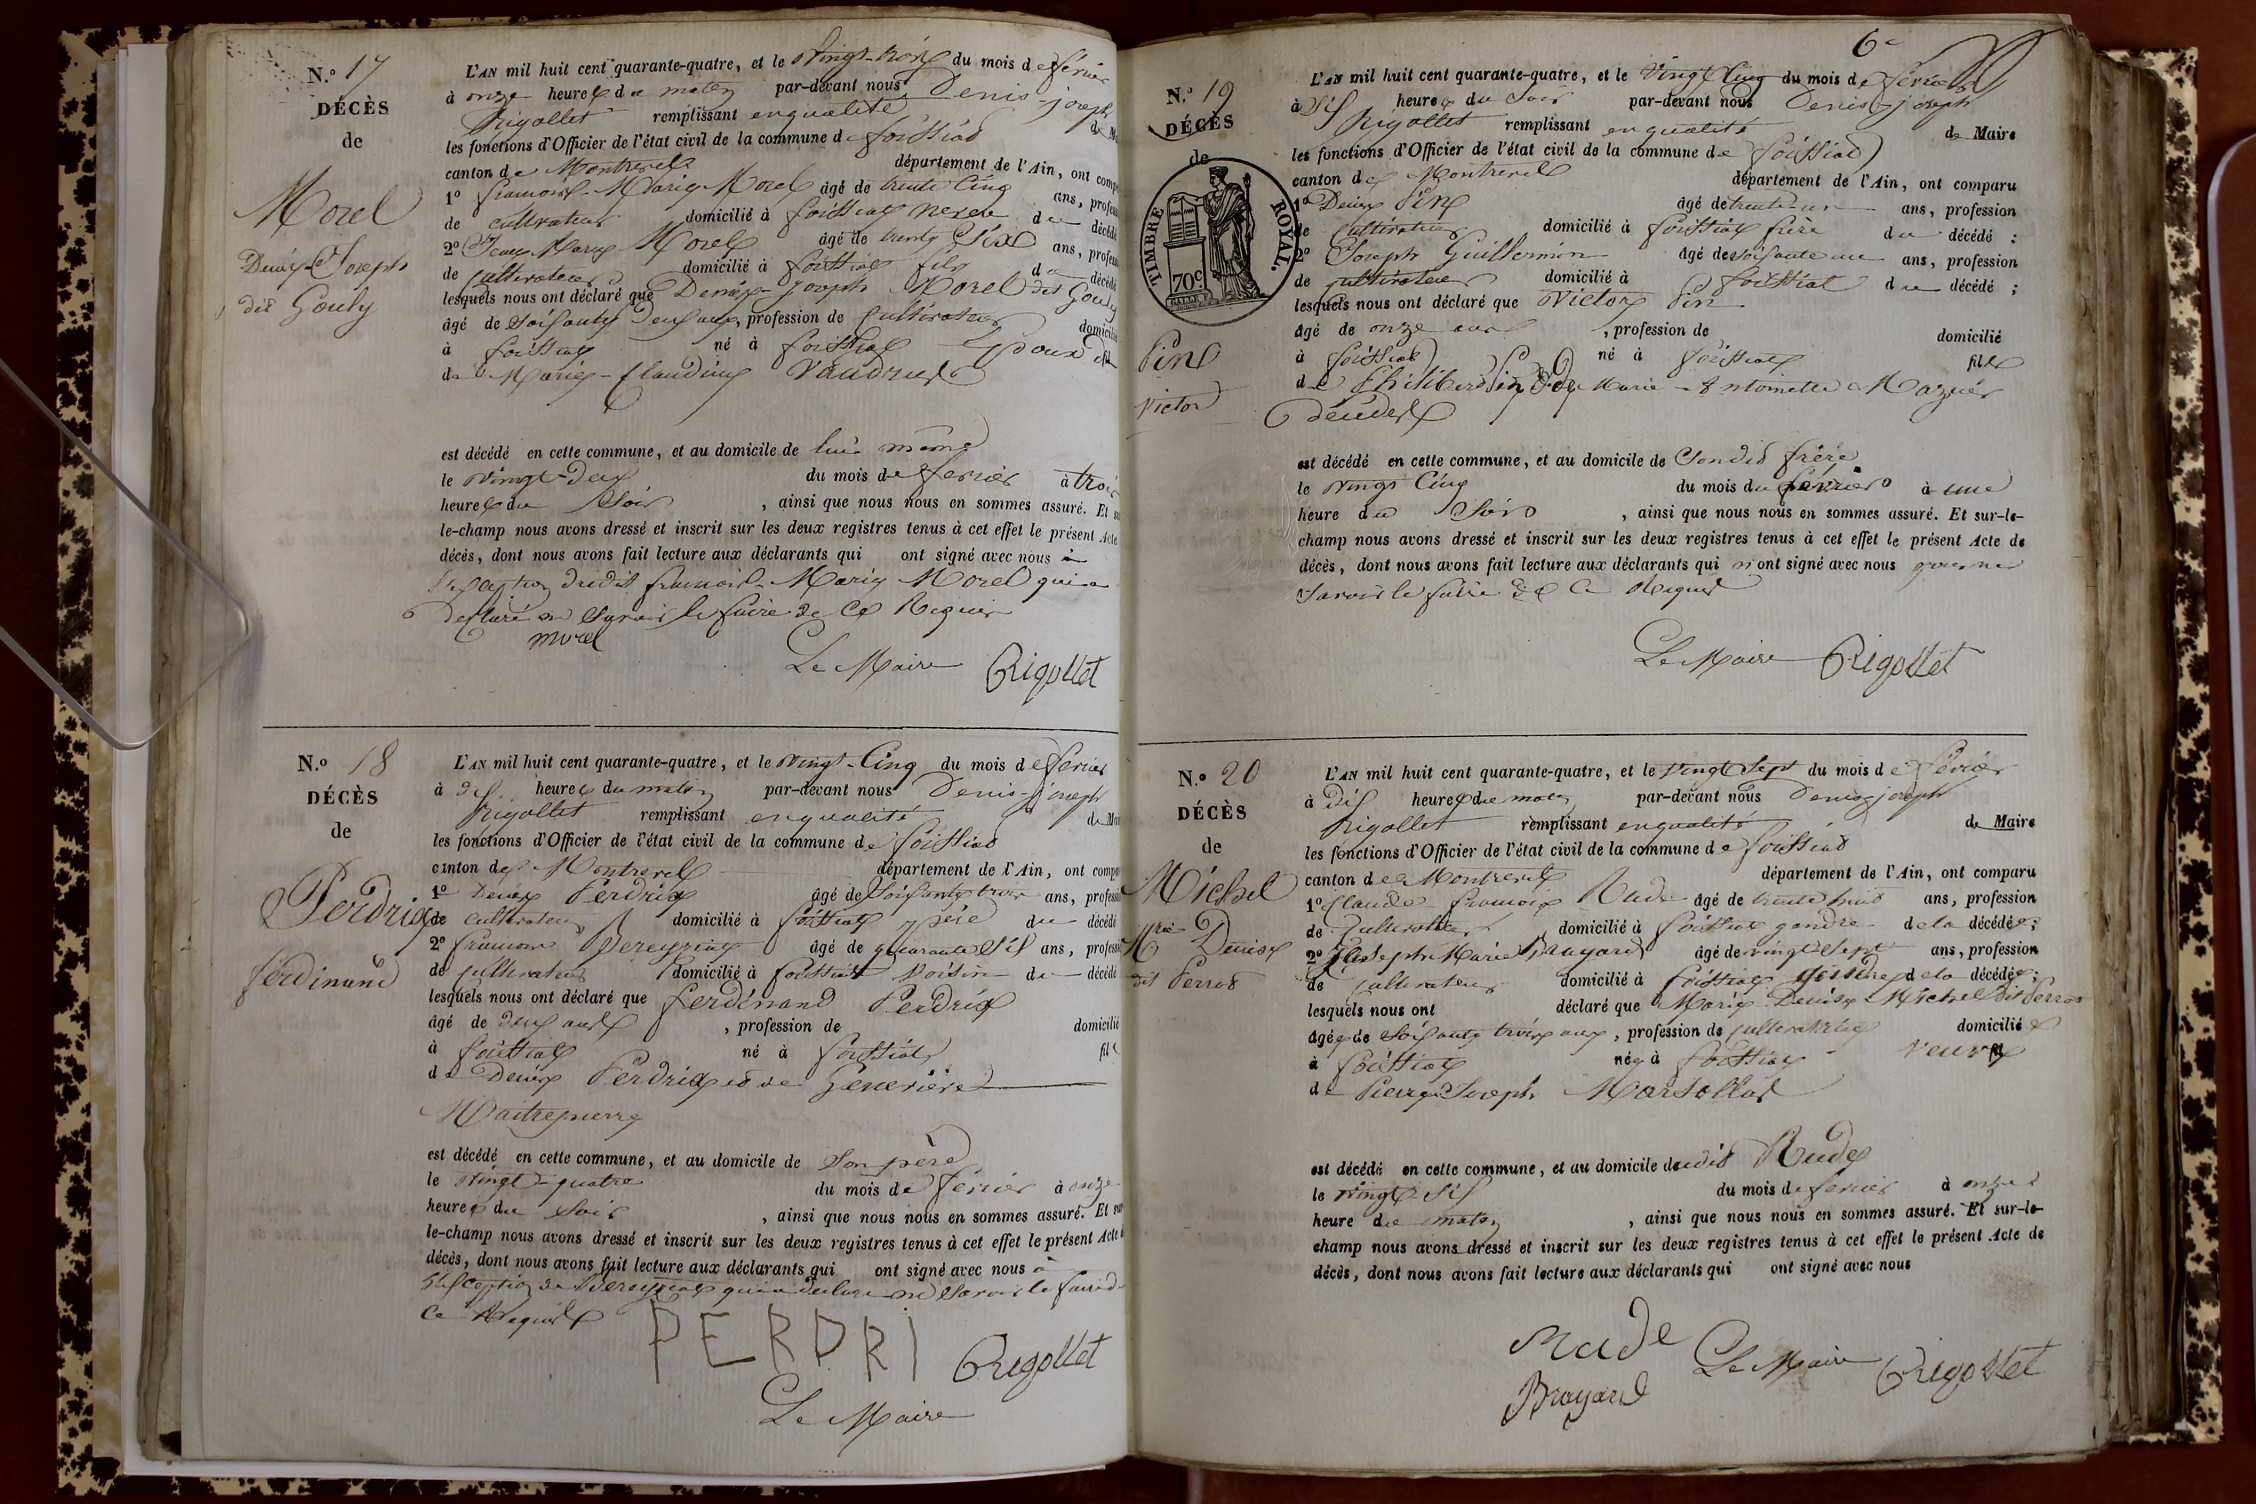 N.o 17
DÉCÈS
de
Morel
Denis Joseph
dit Gouly
L'AN mil huit cent quarante-quatre, et le vingt-trois du mois de février
à onze heures du matin par-devant nous Denis-joseph
Rigollet remplissant en qualité de
les fonctions d'Officier de l'état civil de la commune de foissiat
canton de Montrevel département de l'Ain, ont
1o Marie Morel âgé de trente cinq ans,
de cultivateur domicilié à foissiat neveu du décédé
2o Jean Marie Morel âgé de trente six ans,
de cultivateur domicilié à foissiat fils du décédé
lesquels nous ont déclaré que Denis joseph Morel dit Gouly
âgé de soixante deux ans, profession de cultivateur
à foissiat né à foissiat Epoux
de Marie-Claudine Vaudrey
est décédé en cette commune, et au domicile de lui même
le vingt-deux du mois de fevrier à trois
heures du Soir , ainsi que nous nous en sommes assuré. Et
le-champ nous avons dressé et inscrit sur les deux registres tenus à cet effet le présent Acte
décès, dont nous avons fait lecture aux déclarants qui ont signé avec nous à
Marie Morel qui a
declaré ne savoir le faire de ce Requis
morel
Le Maire Rigollet
N.o 18
DÉCÈS
de
Perdrix
ferdinand
L'AN mil huit cent quarante-quatre, et le vingt-cinq du mois de fevrier
à dix heures du matin par-devant nous Denis-joseph
Rigollet remplissant en qualité de
les fonctions d'Officier de l'état civil de la commune de foissiat
canton de Montrevel département de l'Ain, ont
1o Denis Perdrix âgé de soixante trois ans,
de cultivateur domicilié à foissiat père du décédé
2o âgé de quarante six ans,
de cultivateur domicilié à foissiat voisin du décédé
lesquels nous ont déclaré que ferdinand Perdrix
âgé de deux ans , profession de domicilié
à foissiat né à foissiat fils
de Denis Perdrix et de Genevieve
Maitrepierre
est décédé en cette commune, et au domicile de son père
le vingt-quatre du mois de fevrier à onze
heures du soir , ainsi que nous nous en sommes assuré. Et
le-champ nous avons dressé et inscrit sur les deux registres tenus à cet effet le présent Acte
décès, dont nous avons fait lecture aux déclarants qui ont signé avec nous à
qui a declare ne savoir le faire de
ce Requis
PERDRI Rigollet
Le Maire
6e
N.o 19
DÉCÈS
de
TIMBRE ROYAL.
70c
Pin
victor
L'AN mil huit cent quarante-quatre, et le vingt cinq du mois de février
à six heures du soir par-devant nous Denis-joseph
Rigollet remplissant en qualité de Maire
les fonctions d'Officier de l'état civil de la commune de foissiat
canton de Montrevel département de l'Ain, ont comparu
1o Denis Pin âgé de trente un ans, profession
de cultivateur domicilié à foissiat frère du décédé :
2o Joseph Guillermin âgé de soixante un ans, profession
de cultivateur domicilié à foissiat du décédé ;
lesquels nous ont déclaré que victor Pin
âgé de onze ans , profession de domicilié
à foissiat né à foissiat fils
de Philibert Pin et de Marie-Antoinette Mazuer
est décédé en cette commune, et au domicile de son dit frère
le vingt cinq du mois du février à une
heure du Soir , ainsi que nous nous en sommes assuré. Et sur-le-
champ nous avons dressé et inscrit sur les deux registres tenus à cet effet le présent Acte de
décès, dont nous avons fait lecture aux déclarants qui n'ont signé avec nous pour ne
savoir le faire de ce Requis
Le Maire Rigollet
N.o 20
DÉCÈS
de
Michel
Mrie Denise
dit Perrot
L'AN mil huit cent quarante-quatre, et le vingt sept du mois de février
à dix heures du matin par-devant nous Denis-joseph
Rigollet remplissant en qualité de Maire
les fonctions d'Officier de l'état civil de la commune de foissiat
canton de Montrevel département de l'Ain, ont comparu
1o Claude françois Rude âgé de trente huit ans, profession
de cultivateur domicilié à foissiat gendre de la décédée ;
2o Joseph Marie Brayard âgé de vingt sept ans, profession
de cultivateur domicilié à foissiat de la décédée ;
lesquels nous ont déclaré que Marie Denise Michel dit Perrot
âgée de soixante trois ans, profession de cultivatrice domiciliée
à foissiat née à foissiat veuve
de Pierre Joseph Marsollat
est décédé en cette commune, et au domicile dudit Rude
le vingt six du mois de fevrier à onze
heure du matin , ainsi que nous nous en sommes assuré. Et sur-le-
champ nous avons dressé et inscrit sur les deux registres tenus à cet effet le présent Acte de
décès, dont nous avons fait lecture aux déclarants qui ont signé avec nous
Rude Le Maire Rigollet
Brayard